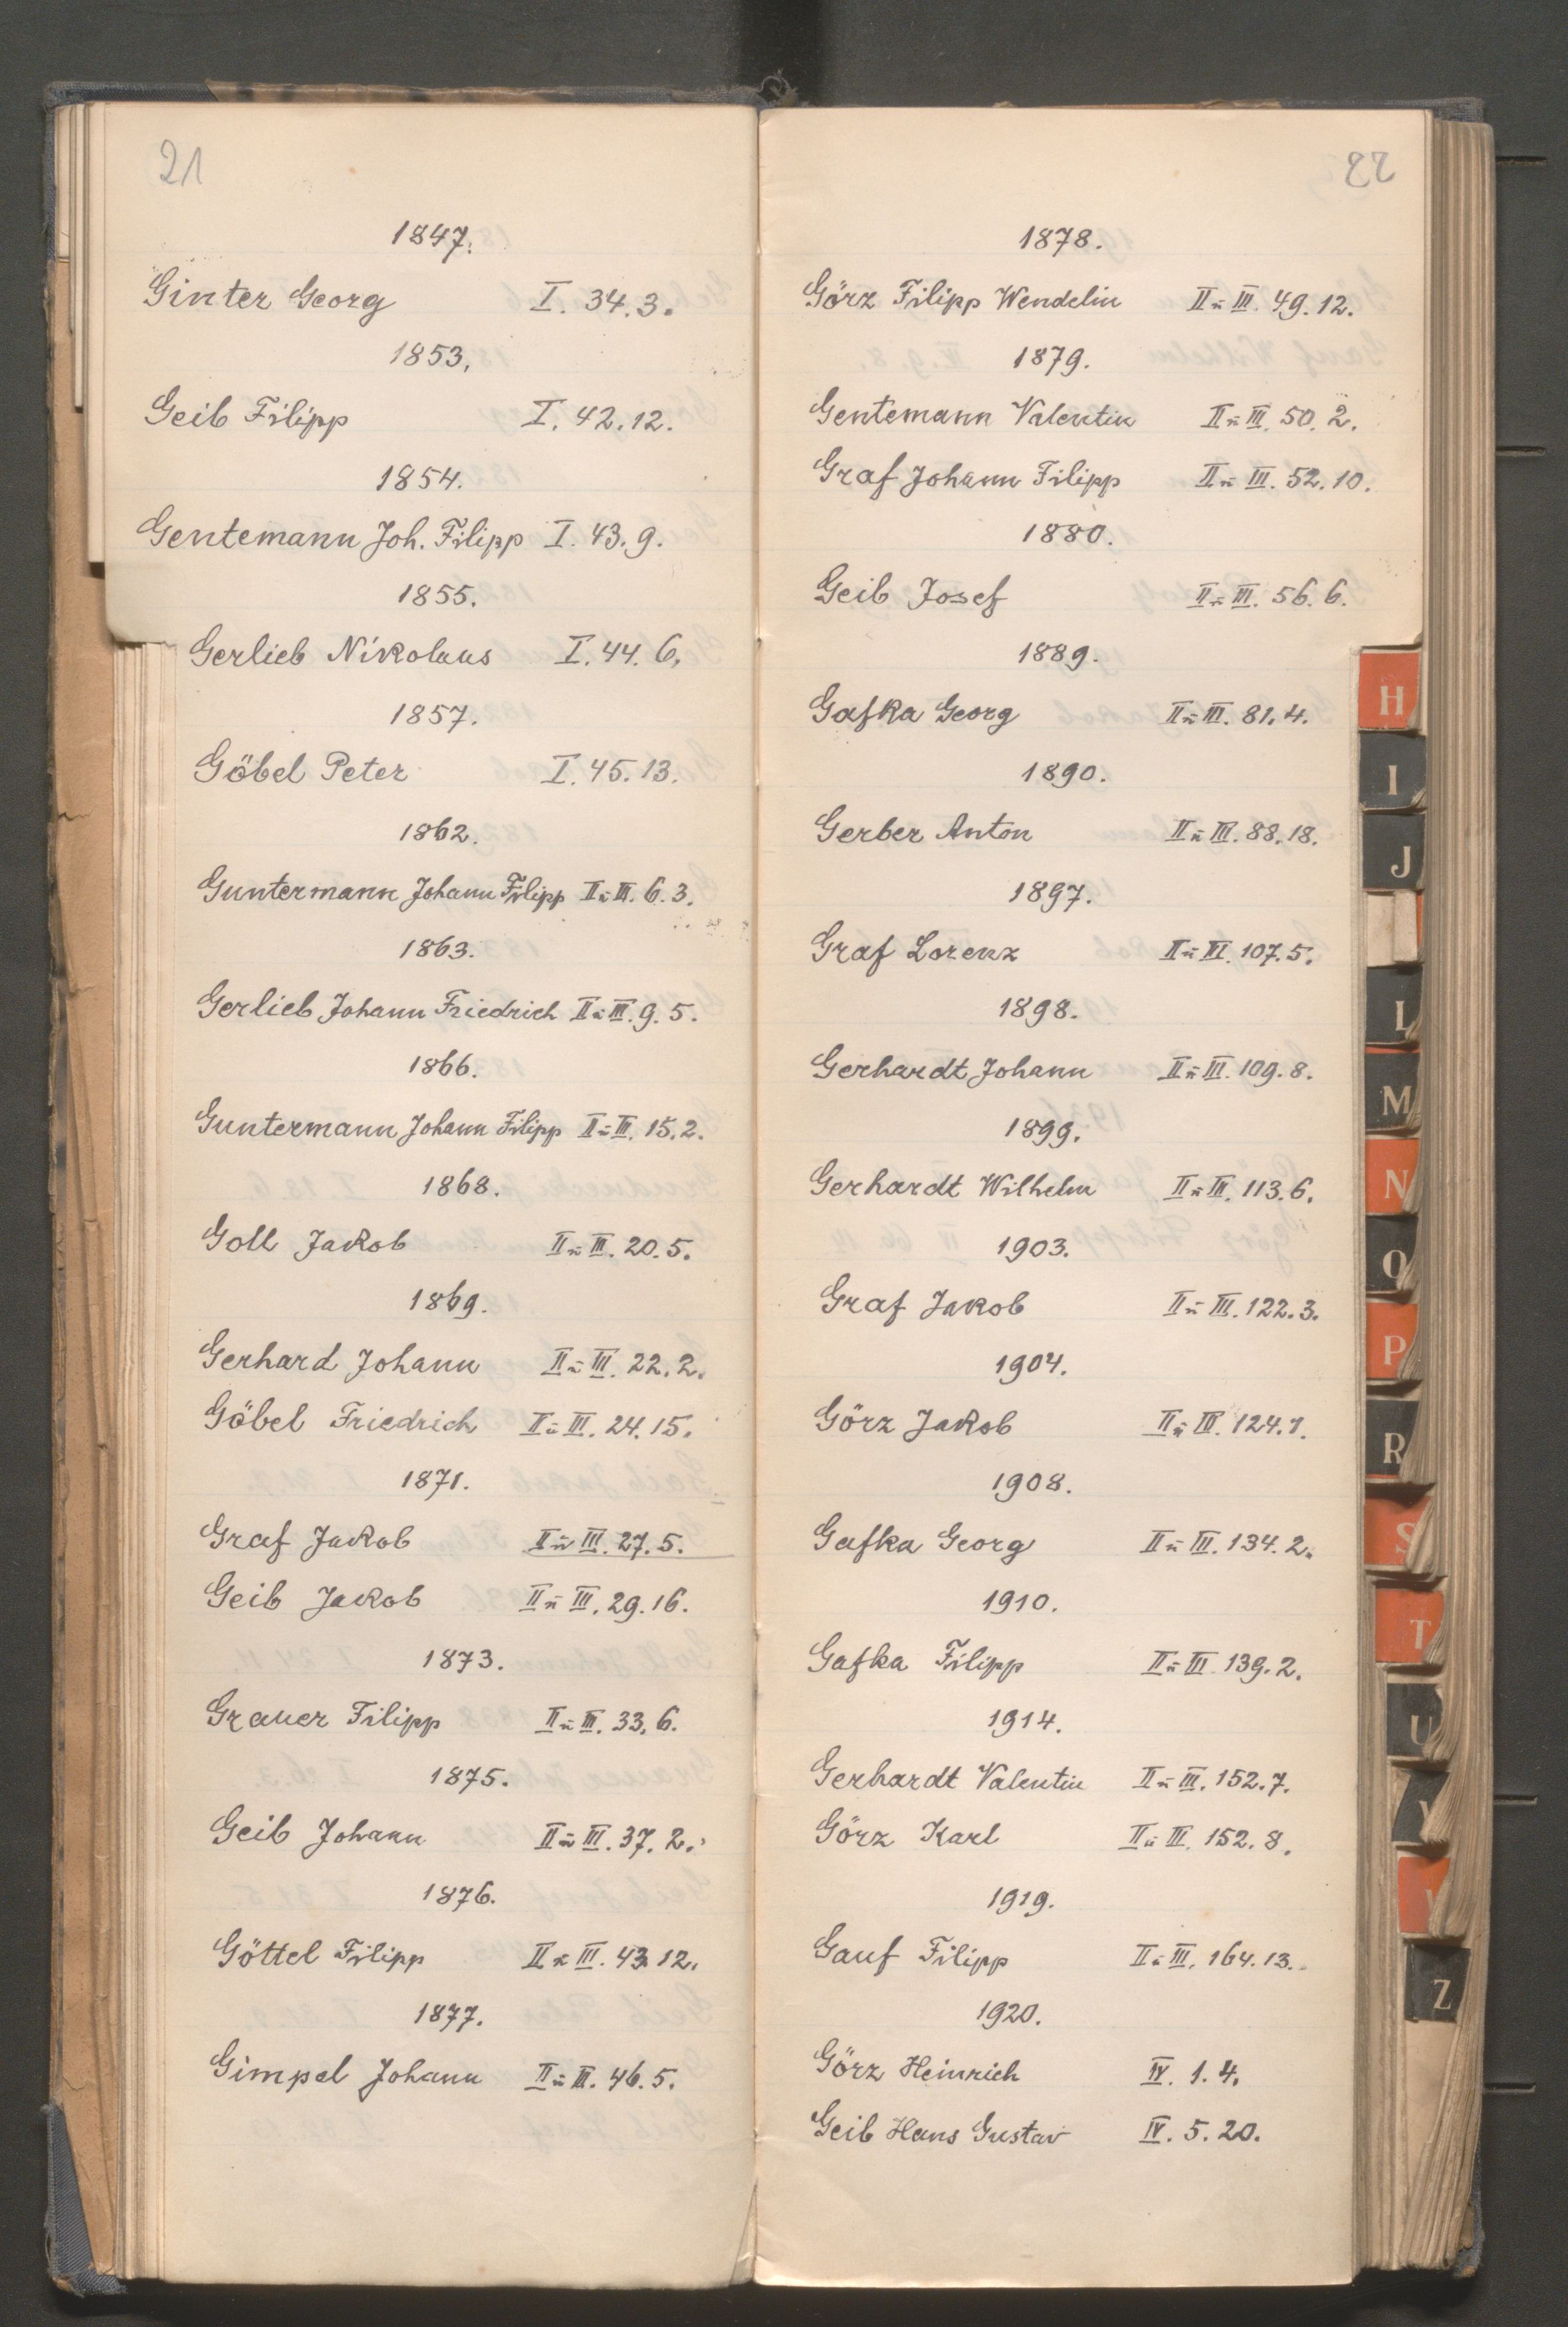 21
1847.
Ginter Georg I. 34. 3.
1853.
Geib Filipp I. 42. 12.
1854.
Gentemann Joh. Filipp I. 43. 9.
1855.
Gerlieb Nikolaus I. 44. 6.
1857.
Göbel Peter I. 45. 13.
1862.
Guntermann Johann Filipp II u III. 6. 3.
1863.
Gerlieb Johann Friedrich II u III. 9. 5.
1866.
Guntermann Johann Filipp II u III. 15. 2.
1868.
Goll Jakob II u III. 20. 5.
1869.
Gerhard Johann II u III. 22. 2.
Göbel Friedrich II u III. 24. 15.
1871.
Graf Jakob II u III. 27. 5.
Geib Jakob II u III. 29. 16.
1873.
Grauer Filipp II u III. 33. 6.
1875.
Geib Johann II u III. 37. 2.
1876.
Göttel Filipp II u III. 43. 12.
1877.
Gimpel Johann II u III. 46. 5.
22
1878.
Görz Filipp Wendelin II u III. 49. 12.
1879.
Gentemann Valentin II u III. 50. 2.
Graf Johann Filipp II u III. 52. 10.
1880.
Geib Josef II u III. 56. 6.
1889.
Gafka Georg II u III. 81. 4.
1890.
Gerber Anton II u III. 88. 18.
1897.
Graf Lorenz II u III. 107. 5.
1898.
Gerhardt Johann II u III. 109. 8.
1899.
Gerhardt Wilhelm II u III. 113. 6.
1903.
Graf Jakob II u III. 122. 3.
1904.
Görz Jakob II u III. 124. 1.
1908.
Gafka Georg II u III. 134. 2.
1910.
Gafka Filipp II u III. 139. 2.
1914.
Gerhardt Valentin II u III. 152. 7.
Görz Karl II u III. 152. 8.
1919.
Gauf Filipp II u III. 164. 13.
1920.
Görz Heinrich IV. 1. 4.
Geib Hans Gustav IV. 5. 20.
H
I
J
L
M
N
O
P
R
S
T
U
Z